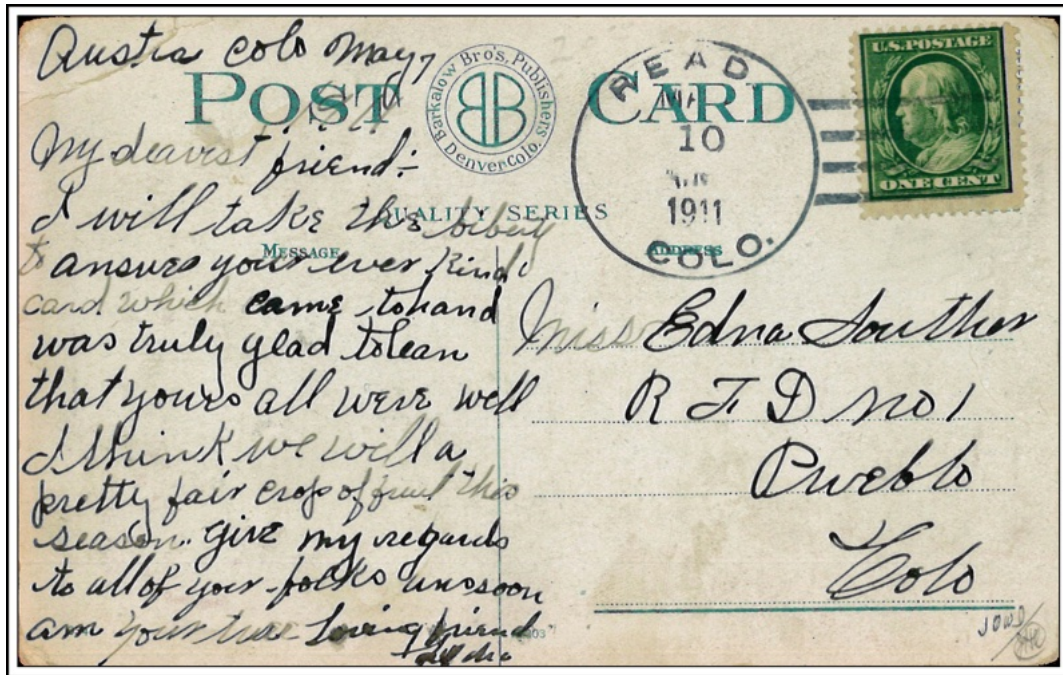 Austra Colo May 7
POST CARD
Barkalow Bro's. Publishers
Denver, Colo.
BB
READ
MA
10
1911
COLO.
U.S. POSTAGE
ONE CENT
My dearest friend:-
I will take the liberty
QUALITY SERIES
MESSAGE
ADDRESS
to answer your ever kind
card which came to hand
was truly glad to lean
that yours all were well
I think we will a
pretty fair crop of fruit this
season. give my regards
to all of your folks
am your true Loving friend
Miss Edna Souther
R F D no 1
Pueblo
Colo